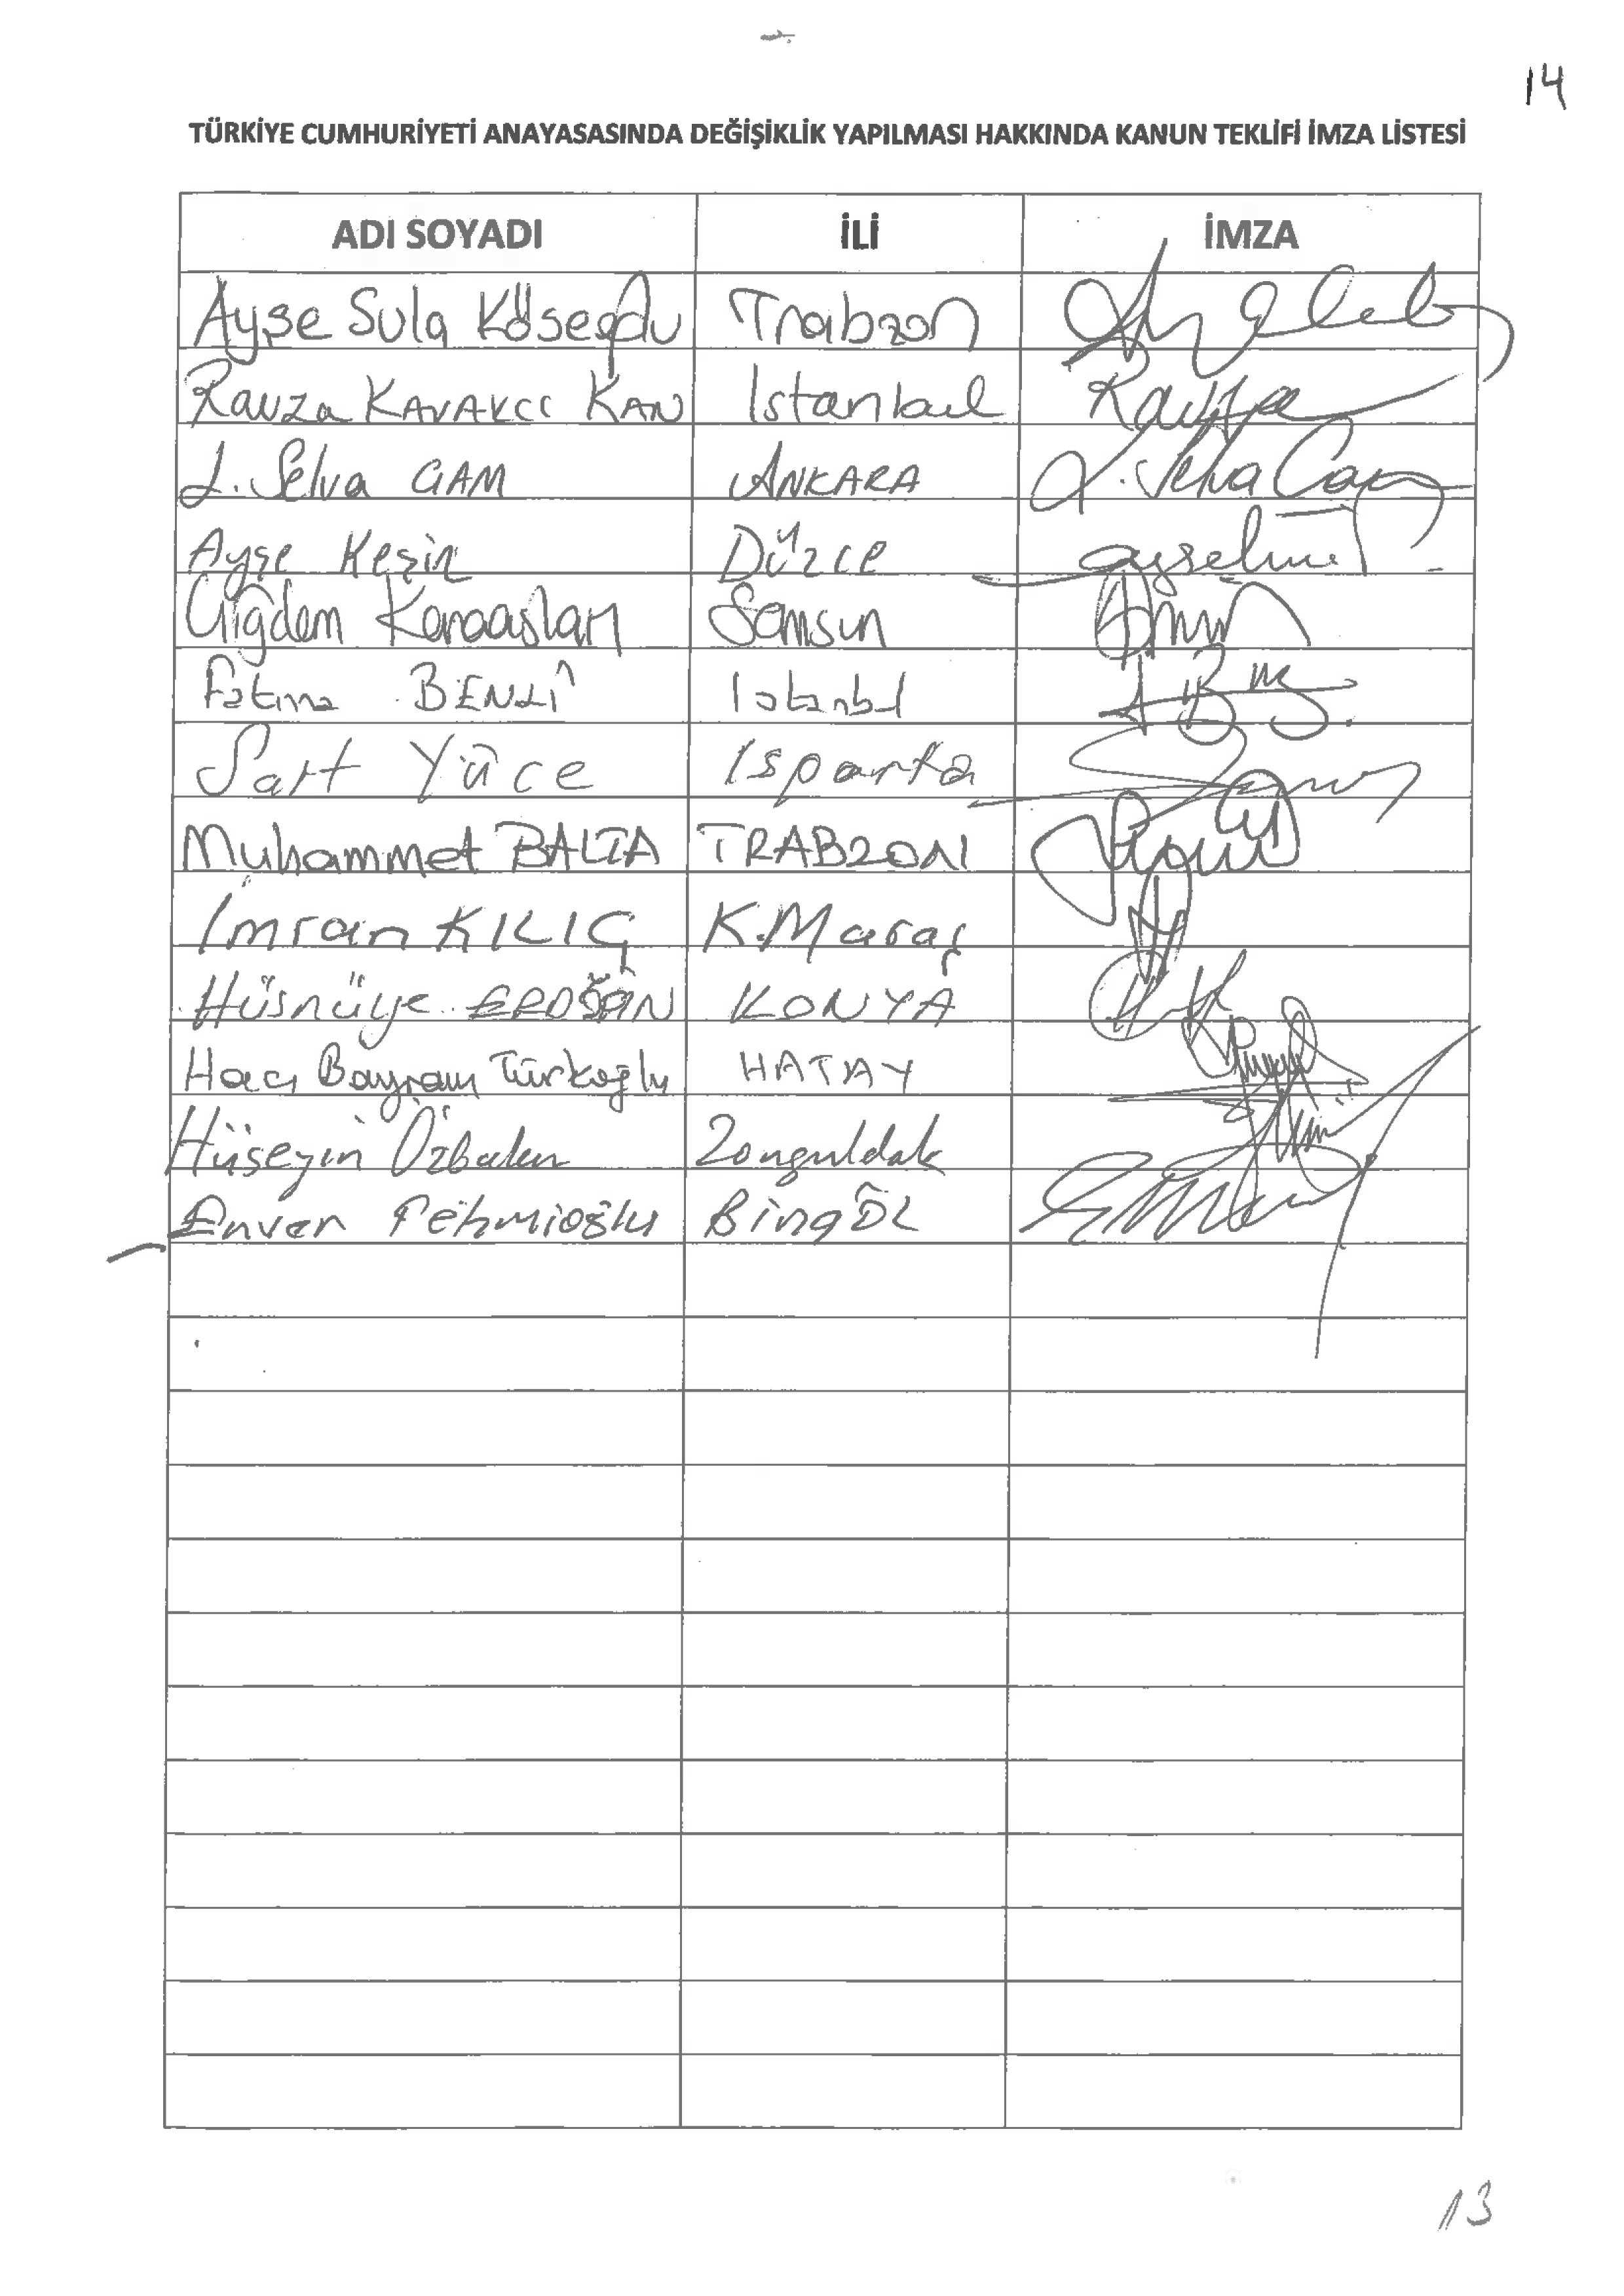 14
TÜRKİYE CUMHURİYETİ ANAYASASINDA DEĞİŞİKLİK YAPILMASI HAKKINDA KANUN TEKLİFİ İMZA LİSTESİ
ADI SOYADI İLİ İMZA
Ayşe Sula Köseoğlu Trabzon
Ravza KAVAKCI KAN Istanbul Ravza
L. Selva ÇAM ANKARA L. Selva Çam
Ayşe Keşir Düzce
Çiğdem Karaaslan Samsun
Fatma BENLİ Istanbul
Sait Yüce Isparta
Muhammet BALTA TRABZON
İmran KILIÇ K.Maraş
Hüsnüye ERDOĞAN KONYA
Hacı Bayram Türkoğlu HATAY
Hüseyin Özbakır Zonguldak
Enver Fehmioğlu BingÖL
13